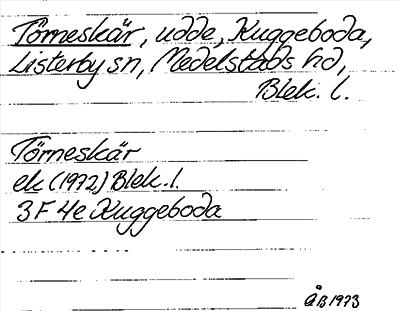 Törneskär, udde, Kuggeboda,
Listerby sn, Medelstads hd,
Blek. l.
Törneskär
ek (1972) Blek. l.
3F 4e Kuggeboda
ÅB 1973